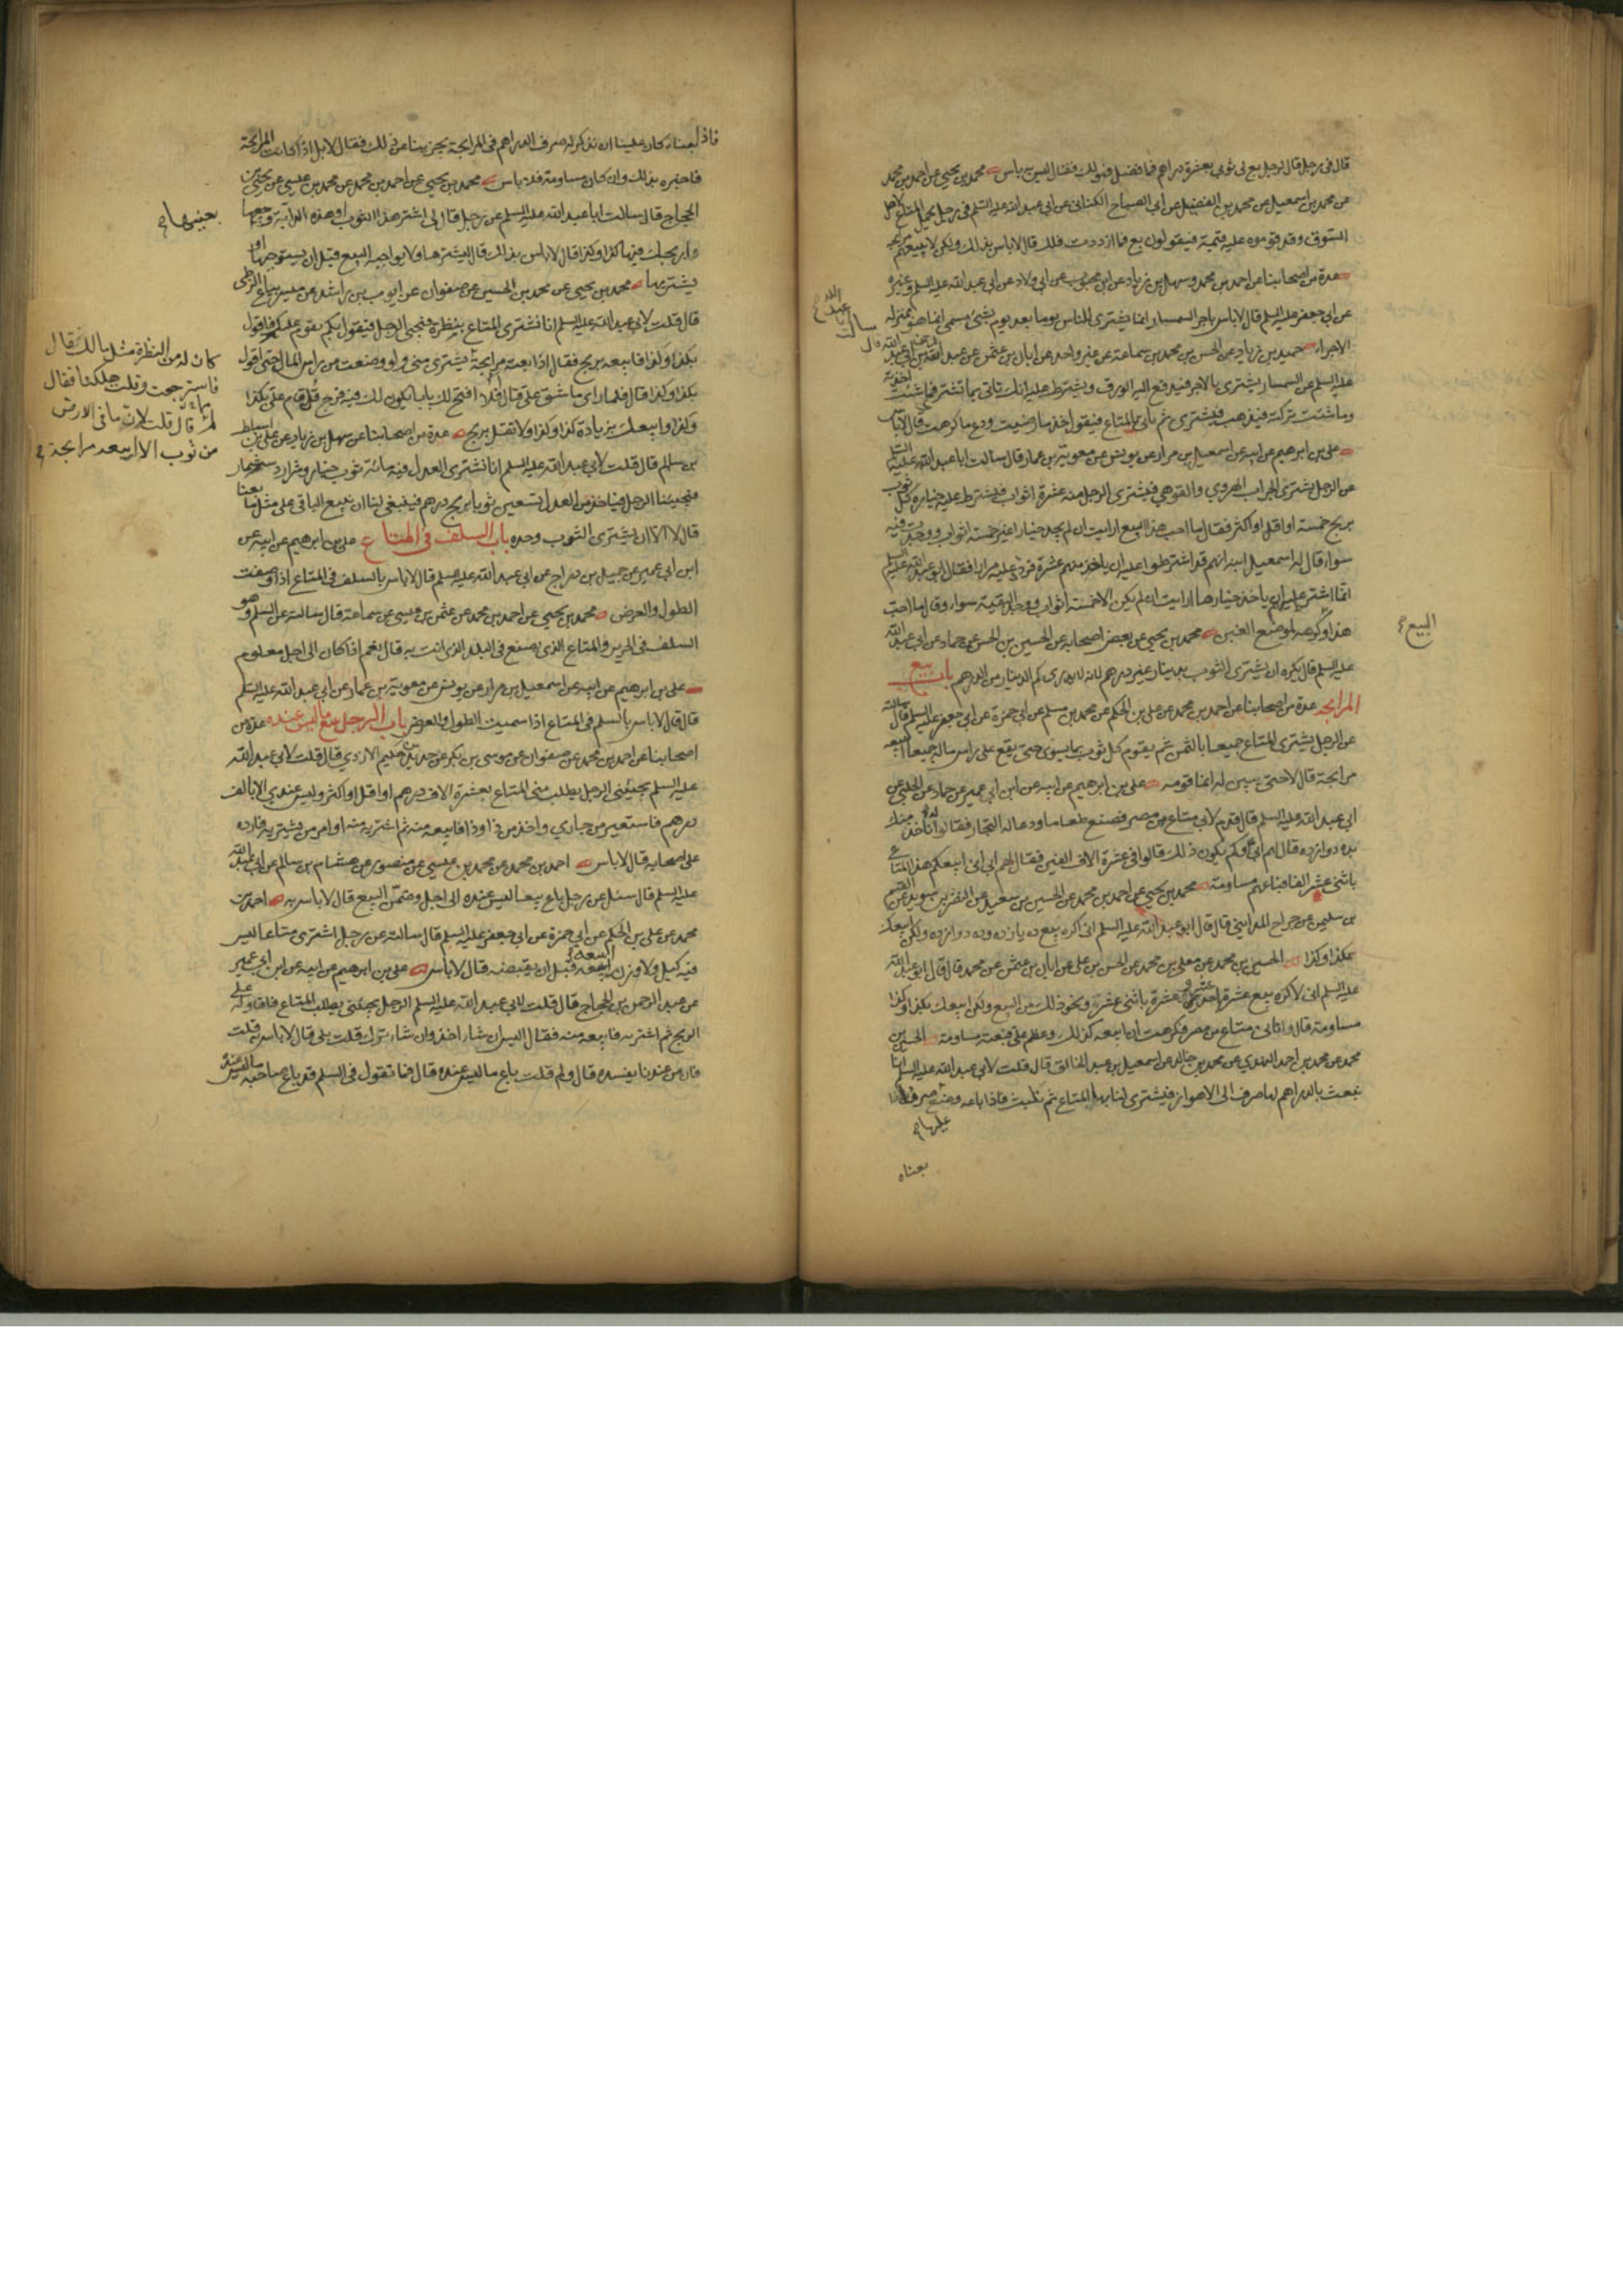 قال في رجل قال لرجل بع لي ثوبي بعشرة دراهم فما فضل فهو لك فقال ليس به باس محمد بن يحيى عن احمد بن محمد
عن محمد بن اسمعيل عن محمد بن الفضيل عن ابي الصباح الكناني عن ابي عبد الله عليه السلم في رجل يحمل المتاع لاهل
السوق وقد قوموه عليه قيمة فيقولون بع فما ازددت فلك قال لا باس بذلك ولكن لا يبيعهم
عدة من اصحابنا عن احمد بن محمد وسهل بن زياد عن ابن محبوب عن ابي ولاد عن ابي عبد الله عليه السلم وغيره
عن ابي جعفر عليه السلم قال لا باس باجر السمسار انما يشترى للناس يوما بعد يوم بشئ مسمى انما هو بمنزله
الاجراء حميد بن زياد عن الحسن بن محمد بن سماعة عن غير واحد عن ابان بن عثمن عن عبد الرحمن بن ابي عبد الله قال سالت ابا عبد الله
عليه السلم عن السمسار يشترى بالاجر فيدفع اليه الورق ويشترط عليه انك تاتي بما تشتري فما شئت اخذته
وما شئت تركته فيذهب فيشترى ثم ياتى بالمتاع فيقول خذ ما رضيت ودع ما كرهت قال لا باس
على بن ابرهيم عن ابيه عن اسمعيل بن مرار عن يونس عن معوية بن عمار قال سالت ابا عبد الله عليه السلم
عن الرجل يشترى الجراب الهروي والقوهي فيشترى الرجل منه عشرة اثواب فيشترط عليه خياره كل ثوب
بربح خمسة او اقل او اكثر فقال ما احب هذا البيع ارايت ان لم يجد خيارا غير خمسة اثواب ووجد بقيته
سواء قال له اسمعيل ابنه انهم قد اشترطوا عليه ان ياخذ منهم عشرة فردد عليه مرارا فقال ابو عبد الله عليه السلم
انما اشترط عليه ان ياخذ خيارها ارايت ان لم يكن الا خمسة اثواب ووجد البقية سواء وقال ما احب
هذا وكرهه لموضع الغبن محمد بن يحيى عن بعض اصحابه عن الحسين بن الحسن عن حماد عن ابي عبد الله
البيع
عليه السلم قال يكره ان يشترى الثوب بدينار غير درهم لانه لا يدرى كم الدينار من الدرهم باب بيع
المرابحه عدة من اصحابنا عن احمد بن محمد عن على بن الحكم عن محمد بن مسلم عن ابي حمزة عن ابي جعفر عليه السلم قال سالته
عن الرجل يشترى المتاع جميعا بالثمن ثم يقوم كل ثوب بما يسوى حتى يقع على راس ماله جميعا ايبيعه
مرابحة قال لا حتى يبين له انما قومه على بن ابرهيم عن ابيه عن ابن ابي عمير عن حماد عن الحلبي عن
ابي عبد الله عليه السلم قال قدم لابي متاع من مصر فصنع طعاما ودعا له التجار فقالوا له انا ناخذه منك
بده دوازده قال لهم ابي وكم يكون ذلك قالوا في عشرة الاف الفين فقال لهم ابي اني ابيعكم هذا المتاع
باثنى عشر الفا فباعهم مساومة محمد بن يحيى عن احمد بن محمد عن الحسين بن سعيد عن النضر بن سويد عن القسم
بن سليمن عن جراح المدايني قال قال ابو عبد الله عليه السلم انى اكره بيع ده يازده وده دوازده ولكن ابيعك
بكذا وكذا الحسين بن محمد عن معلى بن محمد عن الحسن بن على عن ابان بن عثمن عن محمد قال قال ابو عبد الله
عليه السلم انى لاكره بيع عشرة باحد عشر وعشرة باثنى عشر ونحو ذلك من البيع ولكن ابيعك بكذا وكذا
مساومة قال واتانى متاع من مصر فكرهت ان ابيعه كذلك وعظم على فبعته مساومة الحسين بن
محمد عن محمد بن احمد النهدي عن محمد بن خالد عن اسمعيل بن عبد الخالق قال قلت لابي عبد الله عليه السلم انا
نبعث بالدراهم لها صرف الى الاهواز فيشترى لنا بها المتاع ثم نلبث فاذا باعه وضع صرفه
عليها
بعناه
فاذا بعناه كان علينا ان نذكر له صرف الدراهم في المرابحة يجزينا عن ذلك فقال لا بل اذا كانت المرابحة
فاخبره بذلك وان كان مساومة فلا باس محمد بن يحيى عن احمد بن محمد عن محمد بن عيسى عن يحيى بن
الحجاج قال سالت ابا عبد الله عليه السلم عن رجل قال لى اشتر هذا الثوب او هذه الدابة وبعنيها
بعنيها
اربحك فيها كذا وكذا قال لا باس بذلك قال ليشترها ولا يواجبه البيع قبل ان يستوجبها او
يشتريها محمد بن يحيى عن محمد بن الحسين عن صفوان عن ايوب بن راشد عن ميسر بياع الزطي
قال قلت لابي عبد الله عليه السلم انا نشترى المتاع بنظرة فيجئ الرجل فيقول بكم يقوم عليكم فاقول
بكذا وكذا فابيعه بربح فقال اذا بعته مرابحة
كان له من النظرة مثل مالك قال
فاسترجعت وقلت هلكنا فقال
مم قال قلت لان ما في الارض
من ثوب الا ابيعه مرابحة
يشترى منى ولو وضعت من راس المال حتى اقول
بكذا وكذا قال فلما راى ما شق على قال افلا افتح لك بابا يكون لك فيه فرج قل قام على بكذا
وكذا وابيعك بزيادة كذا وكذا ولا تقل بربح عدة من اصحابنا عن سهل بن زياد عن على بن اسباط
بن سالم قال قلت لابي عبد الله عليه السلم انا نشترى العدل فيه مائة ثوب خيار وشرار دستشمار
فيجيئنا الرجل فياخذ من العدل تسعين ثوبا بربح درهم فينبغي لنا ان نبيع الباقى على مثل ما بعنا
قال لا الا ان يشترى الثوب وحده باب السلف في المتاع على بن ابرهيم عن ابيه عن
ابن ابي عمير عن جميل بن دراج عن ابي عبد الله عليه السلم قال لا باس بالسلف في المتاع اذا وصفت
الطول والعرض محمد بن يحيى عن احمد بن محمد عن عثمن بن عيسى عن سماعة قال سالته عن السلم وهو
السلف في الحرير والمتاع الذى يصنع في البلد الذى انت به قال نعم اذا كان الى اجل معلوم
على بن ابرهيم عن ابيه عن اسمعيل بن مرار عن يونس عن معوية بن عمار عن ابي عبد الله عليه السلم
قال قال لا باس بالسلم في المتاع اذا سميت الطول والعرض باب الرجل يبيع ما ليس عنده عدة من
اصحابنا عن احمد بن محمد عن صفوان عن موسى بن بكر عن حديد بن حكيم الازدي قال قلت لابي عبد الله
عليه السلم يجيئنى الرجل يطلب منى المتاع بعشرة الاف درهم او اقل او اكثر وليس عندي الا بالف
درهم فاستعير من جاري واخذ من ذا وذا فابيعه منه ثم اشتريه منه او امر من يشتريه فارده
على اصحابه قال لا باس احمد بن محمد عن محمد بن عيسى عن منصور عن هشام بن سالم عن ابي عبد الله
عليه السلم قال سئل عن رجل باع بيعا ليس عنده الى اجل وضمن البيع قال لا باس به احمد بن
محمد عن على بن الحكم عن ابي حمزة عن ابي جعفر عليه السلم قال سالته عن رجل اشترى متاعا ليس
فيه كيل ولا وزن ايبيعه قبل ان يقبضه قال لا باس على بن ابرهيم عن ابيه عن ابن ابي عمير
عن عبد الرحمن بن الحجاج قال قلت لابي عبد الله عليه السلم الرجل يجيئنى يطلب المتاع فاقاوله على
الربح ثم اشتريه فابيعه منه فقال اليس ان شاء اخذ وان شاء ترك قلت بلى قال لا باس به قلت
فان من عندنا يفسده قال ولم قلت باع ما ليس عنده قال فما تقول في السلم قد باع صاحبه ما ليس عنده